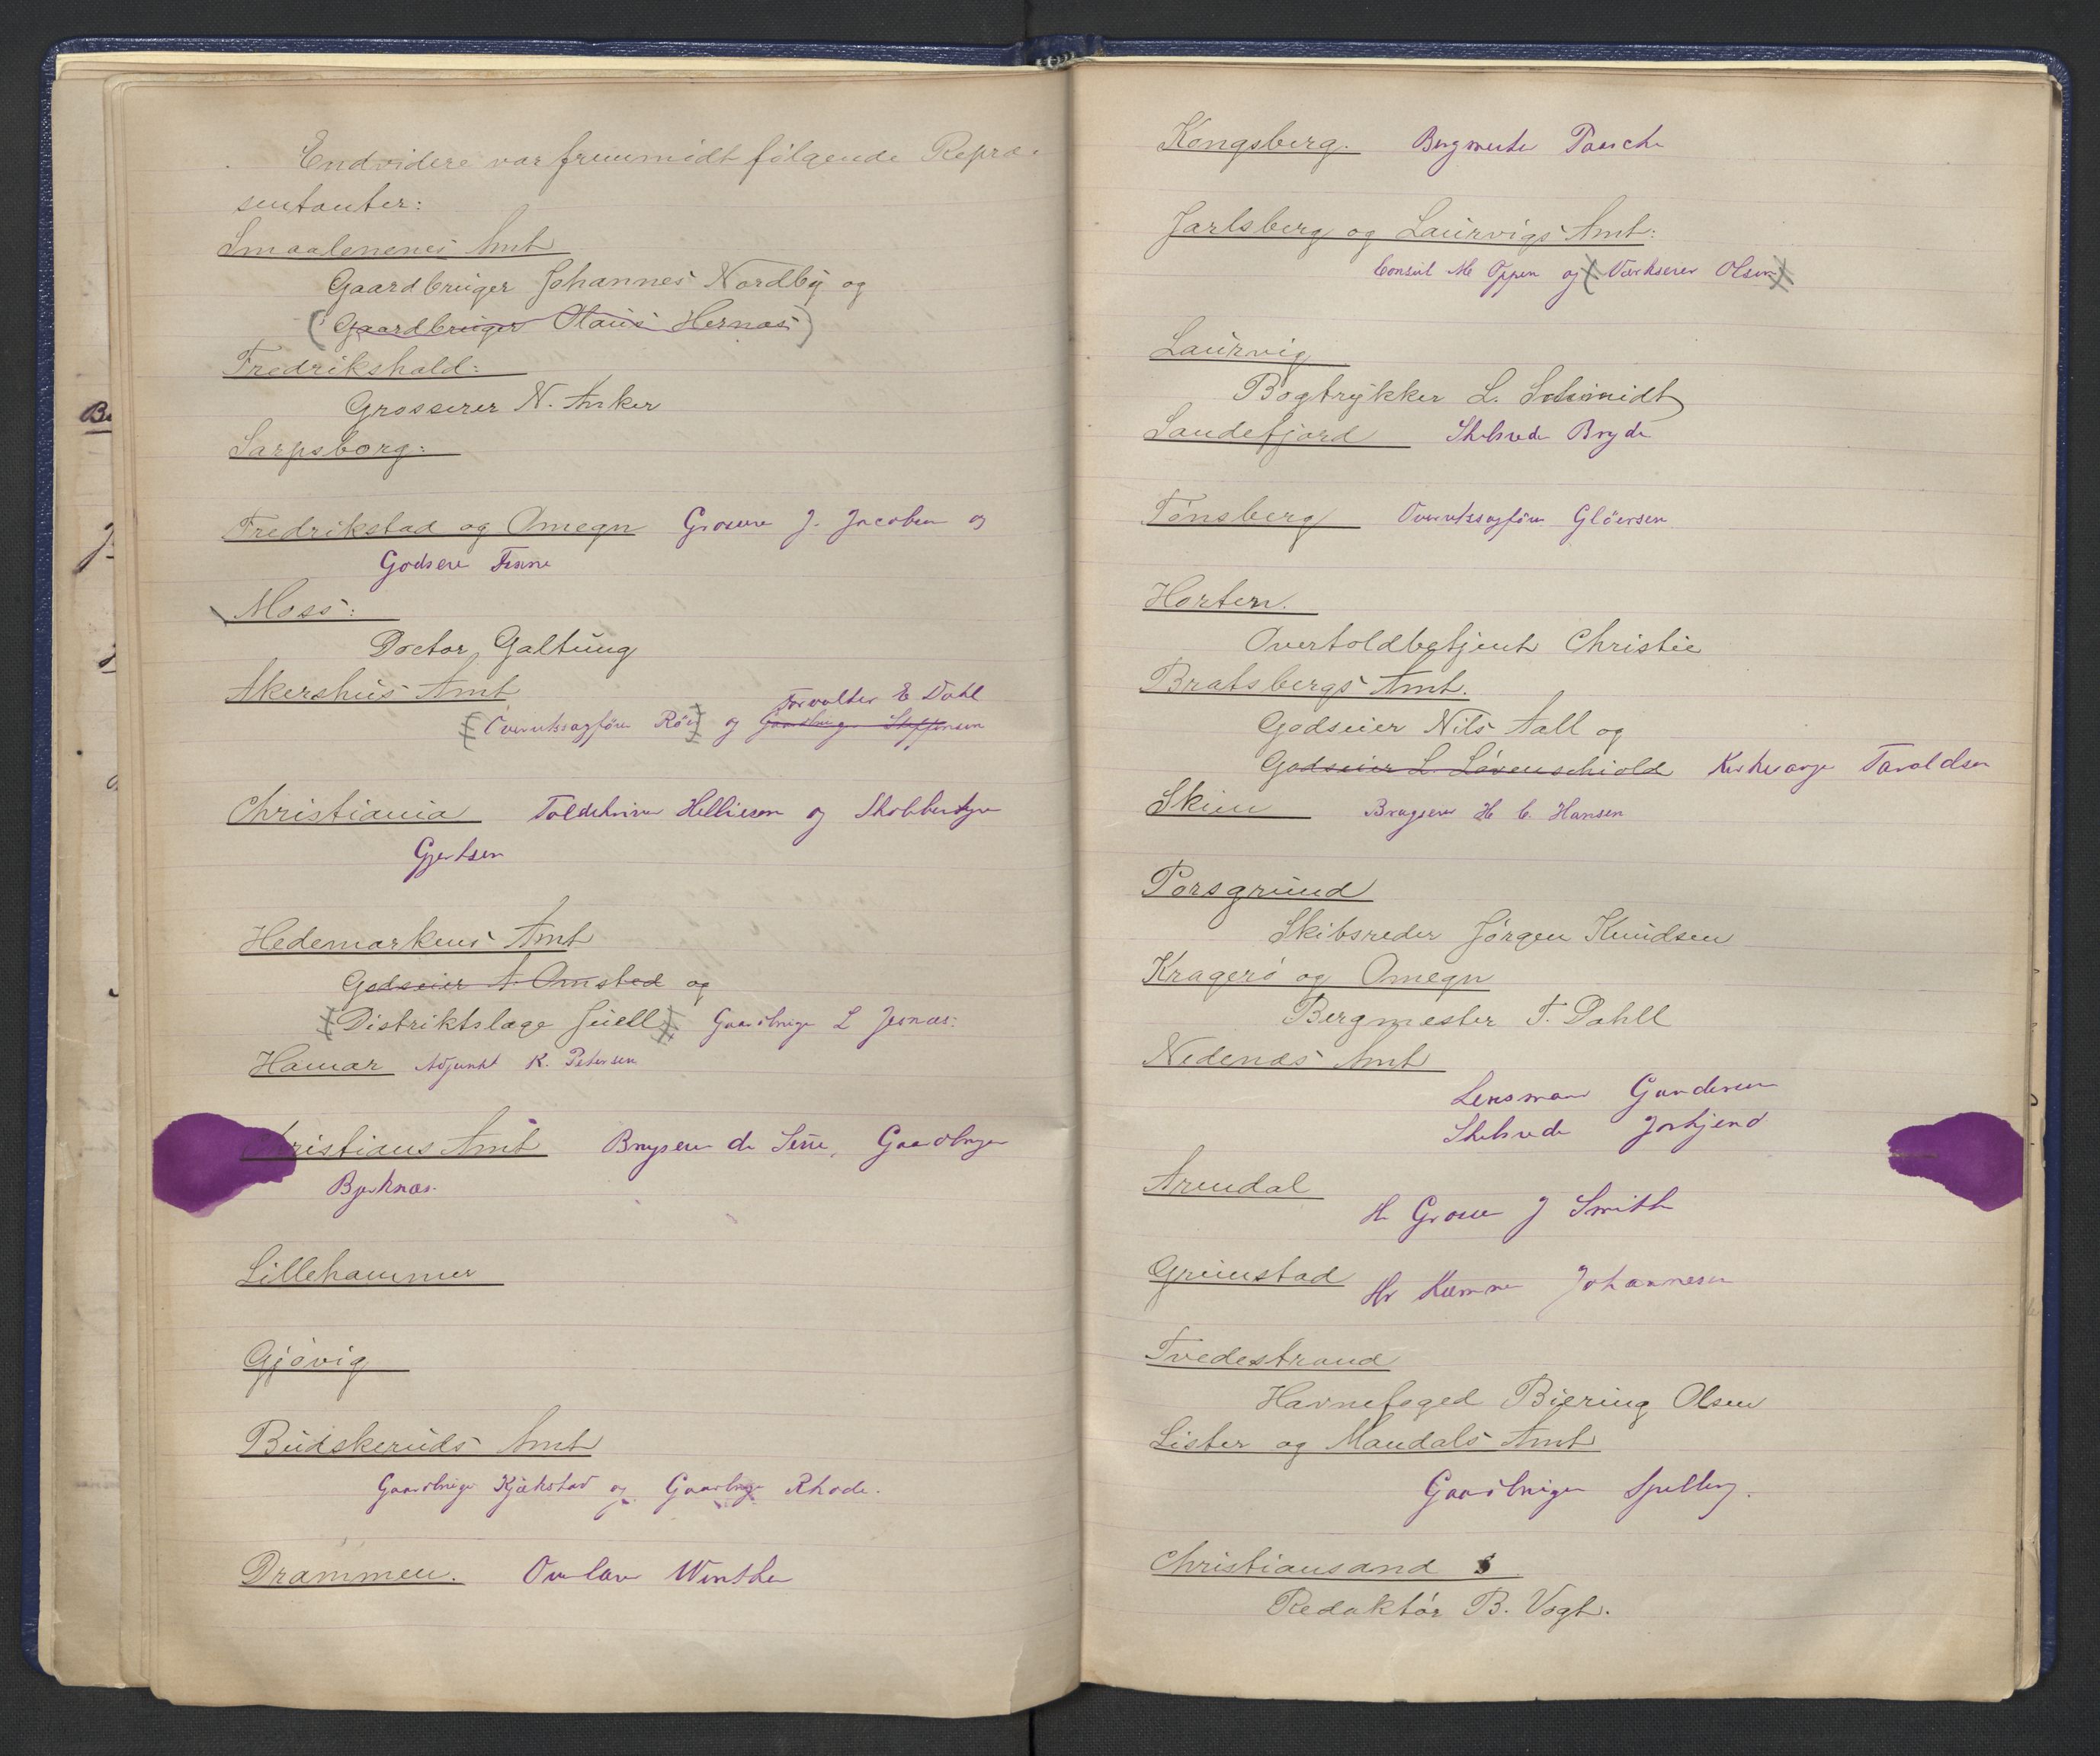 Endvidere var fremmödt fölgende Repræ-
sentanter:
Smaalenenes Amt
Gaardbruger Johannes Nordby og
(Gaardbruger Olaus Hernæs)
Fredrikshald:
Grosserer N. Anker
Sarpsborg:
Fredrikstad og Omegn Grosserer J. Jacobsen og
Godseier
Moss:
Doctor Galtung
Akershus Amt
Forvalter E Dahl
(Overretssagförer Röer) og Gaardbruger Steffensen
Christiania Toldskriver Helliesen og Skolebestyrer
Gjertsen
Hedemarkens Amt
Godseier A. Omsted og
(Distriktslæge Juell) Gaardbruger L Jesnæs.
Hamar Adjunkt K. Petersen
Christians Amt Brugseier de Seue, Gaardbruger
Bjerknæs.
Lillehammer
Gjövig
Buskeruds Amt
Gaardbruger Kjekstad og Gaardbruger Rhode.
Drammen. Overlærer Winther
Kongsberg. Bergmester Paasche
Jarlsberg og Laurvigs Amt:
Consul M Oppen og (Værkseier Olsen)
Laurvig
Bogtrykker L. Schmidt
Sandefjord Skibsreder Bryde
Tönsberg Overretssagförer Glöersen
Horten.
Overtoldbetjent Christie
Bratsbergs Amt.
Godseier Nils Aall og
Godseier L. Lövenschiold Kirkeværge Taraldsen
Skien Brugseier H C. Hansen
Porsgrund
Skibsreder Jörgen Knudsen
Kragerö og Omegn
Bergmester T. Dahll
Nedenæs Amt
Lensmand Gundersen
Skibsreder
Arendal
Hr Grosserer J Smith
Grimstad Hr Kæmner Johannesen
Tvedestrand
Havnefoged Biering Olsen
Lister og Mandals Amt
Gaardbruger Spilling.
Christiansand S
Redaktör B. Vogt.